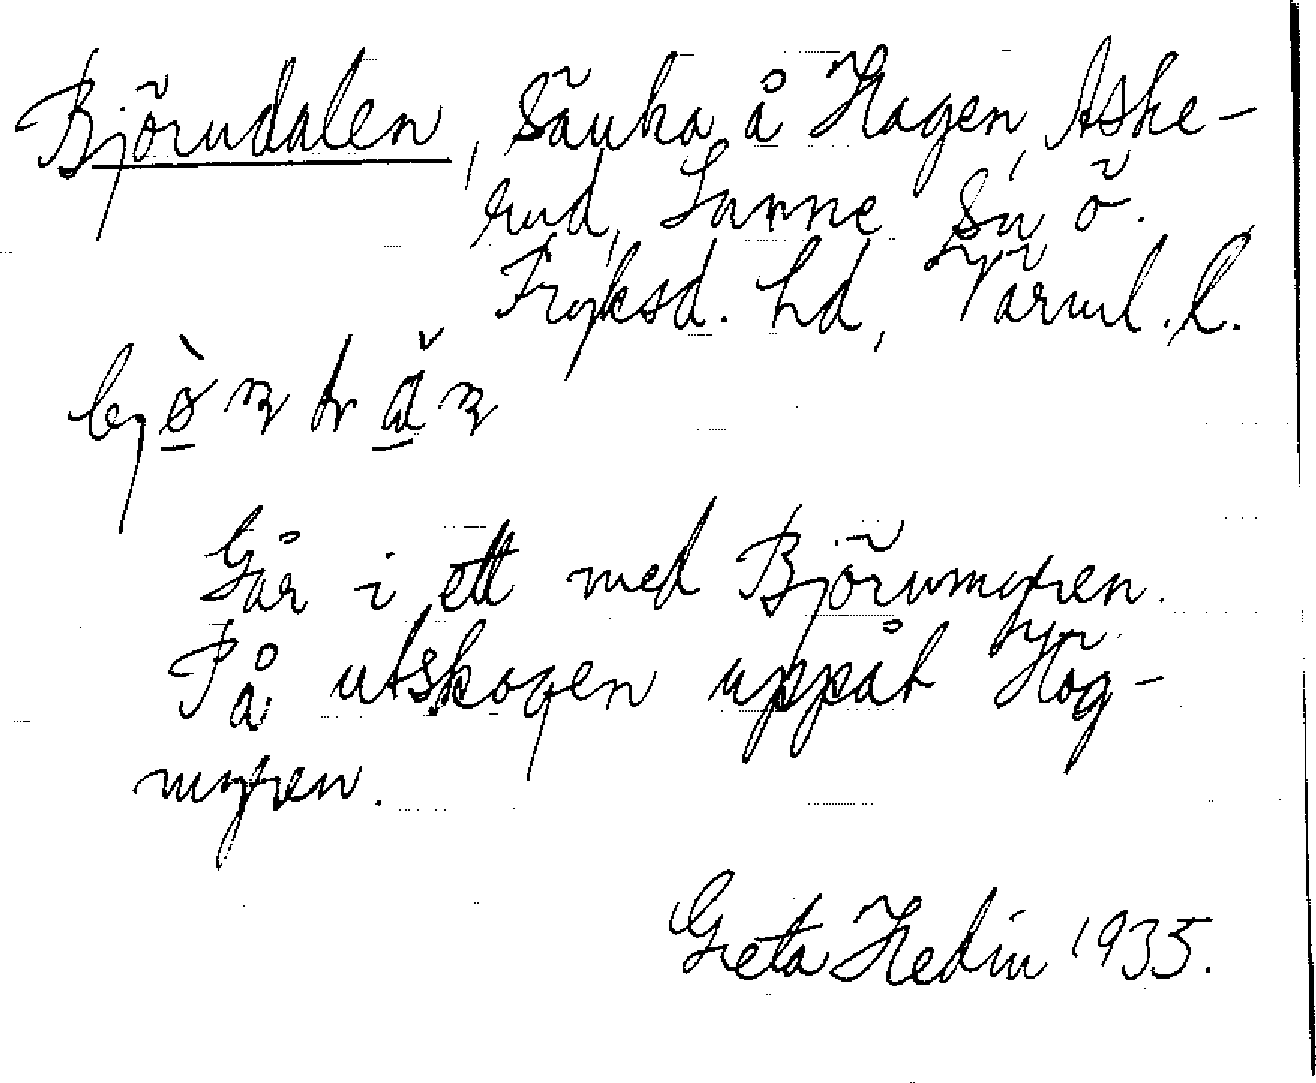 Björndalen, Sänka å Hagen, Aske-
rud, Sunne Sn Ö.
Fryksd. hd, Värml. l.
Går i ett med Björnmyren.
På utskogen uppåt Hög-
myren.
Greta Hedin 1935.